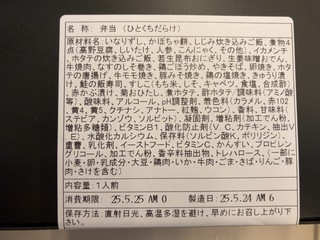 名 称: 弁当 (ひとくちだらけ)
原材料名: いなりずし、かぼちゃ餅、しじみ炊き込みご飯、煮物4点
(高野豆腐、しいたけ、人参、こんにゃく、その他)、イカメンチ、
ホタテの炊き込みご飯、若生昆布おにぎり、生姜味噌おでん、
牛焼肉、なすのしそ巻き、鶏ごぼう炒め、やきそば、卵焼き、ホタテの唐揚げ、
牛モモ焼き、豚みそ焼き、鶏の塩焼き、きゅうり漬け、
鮭の飯寿司、すしこ(もち米、しそ、キャベツ、食塩、合成酢)、
赤かぶ漬け、菊おひたし、煮ホタテ、酢ホタテ、調味料(アミノ酸等)、
酸味料、アルコール、pH調整剤、着色料(カラメル、赤102、
黄4、黄5、クチナシ、アナトー、紅麹、ウコン)、香料、甘味料(ステビア、
カンゾウ、ソルビット)、凝固剤、増粘剤(加工でん粉、
増粘多糖類)、ビタミンB1、酸化防止剤(V.C、カテキン、抽出V.E)、
水酸化カルシウム、保存料(ソルビン酸K、ポリリジン)、
重曹、乳化剤、イーストフード、ビタミンC、かんすい、プロピレングリコール、
加工でん粉、香辛料抽出物、トレハロース、(一部に小麦・
卵・乳成分・大豆・鶏肉・いか・牛肉・ごま・さば・りんご・豚肉・
さけを含む)
内容量: 1人前
消費期限: 25.5.25 AM 0 製造日: 25.5.24 AM 6
保存方法: 直射日光、高温多湿を避け、早めにお召し上がり下さい。